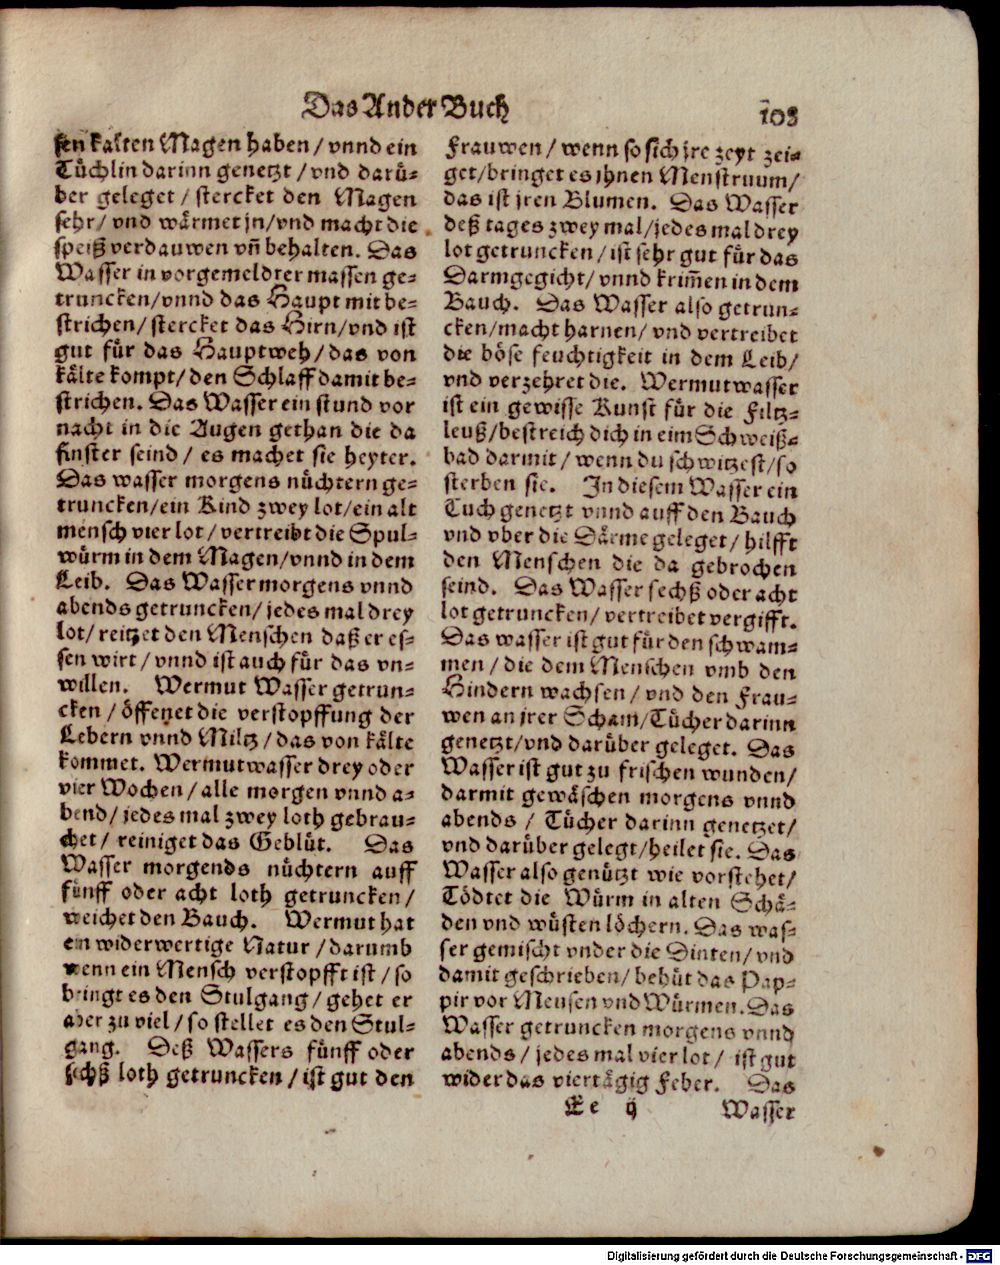 Das Ander Buch
103
sen kalten Magen haben / vnnd ein
Tuͤchlin darinn genetzt / vnd daruͤ-
ber geleget / stercket den Magen
sehr / vnd waͤrmet jn / vnd macht die
speiß verdauwen vñ behalten. Das
Wasser in vorgemeldter massen ge-
truncken / vnnd das Haupt mit be-
strichen / stercket das Hirn / vnd ist
gut fuͤr das Hauptweh / das von
kaͤlte kompt / den Schlaff damit be-
strichen. Das Wasser ein stund vor
nacht in die Augen gethan die da
finster seind / es machet sie heyter.
Das wasser morgens nuͤchtern ge-
truncken / ein Kind zwey lot / ein alt
mensch vier lot / vertreibt die Spul-
wuͤrm in dem Magen / vnnd in dem
Leib. Das Wasser morgens vnnd
abends getruncken / jedes mal drey
lot / reitzet den Menschen daß er es-
sen wirt / vnnd ist auch fuͤr das vn-
willen. Wermut Wasser getrun-
cken / oͤffenet die verstopffung der
Lebern vnnd Miltz / das von kaͤlte
kommet. Wermutwasser drey oder
vier Wochen / alle morgen vnnd a-
bend / jedes mal zwey loth gebrau-
chet / reiniget das Gebluͤt. Das
Wasser morgends nuͤchtern auff
fuͤnff oder acht loth getruncken /
weichet den Bauch. Wermut hat
ein widerwertige Natur / darumb
wenn ein Mensch verstopfft ist / so
bringt es den Stulgang / gehet er
aber zu viel / so stellet es den Stul-
gang. Deß Wassers fuͤnff oder
sechß loth getruncken / ist gut den
Frauwen / wenn so sich jre zeyt zei-
get / bringet es jhnen Menstruum /
das ist jren Blumen. Das Wasser
deß tages zwey mal / jedes mal drey
lot getruncken / ist sehr gut fuͤr das
Darmgegicht / vnnd krim̃en in dem
Bauch. Das Wasser also getrun-
cken / macht harnen / vnd vertreibet
die boͤse feuchtigkeit in dem Leib /
vnd verzehret die. Wermutwasser
ist ein gewisse Kunst fuͤr die Filtz-
leuß / bestreich dich in eim Schweiß-
bad darmit / wenn du schwitzest / so
sterben sie. In diesem Wasser ein
Tuch genetzt vnnd auff den Bauch
vnd vber die Daͤrme geleget / hilfft
den Menschen die da gebrochen
seind. Das Wasser sechß oder acht
lot getruncken / vertreibet vergifft.
Das wasser ist gut fuͤr den schwam-
men / die dem Menschen vmb den
Hindern wachsen / vnd den Frau-
wen an jrer Scham / Tuͤcher darinn
genetzt / vnd daruͤber geleget. Das
Wasser ist gut zu frischen wunden /
darmit gewaͤschen morgens vnnd
abends / Tuͤcher darinn genetzet /
vnd daruͤber gelegt / heilet sie. Das
Wasser also genuͤtzt wie vorstehet /
Toͤdtet die Wuͤrm in alten Schaͤ-
den vnd wuͤsten loͤchern. Das was-
ser gemischt vnder die Dinten / vnd
damit geschrieben / behuͤt das Pap-
pir vor Meusen vnd Wuͤrmen. Das
Wasser getruncken morgens vnnd
abends / jedes mal vier lot / ist gut
wider das viertaͤgig Feber. Das
Ee ij
Wasser
Digitalisierung gefördert durch die Deutsche Forschungsgemeinschaft - DFG